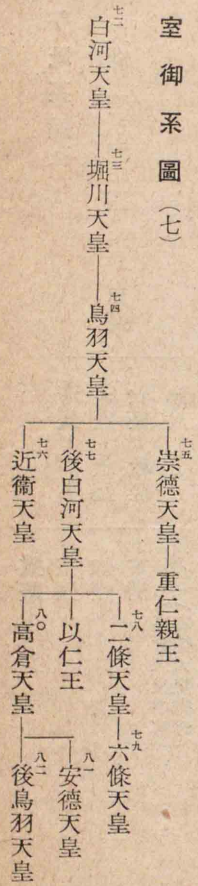 室御系圖(七)
七二 白河天皇
七三 堀川天皇
七四 鳥羽天皇
七五 崇德天皇
重仁親王
七七 後白河天皇
七八 二條天皇
七九 六條天皇
以仁王
八〇 高倉天皇
八一 安德天皇
八二 後鳥羽天皇
七六 近衞天皇